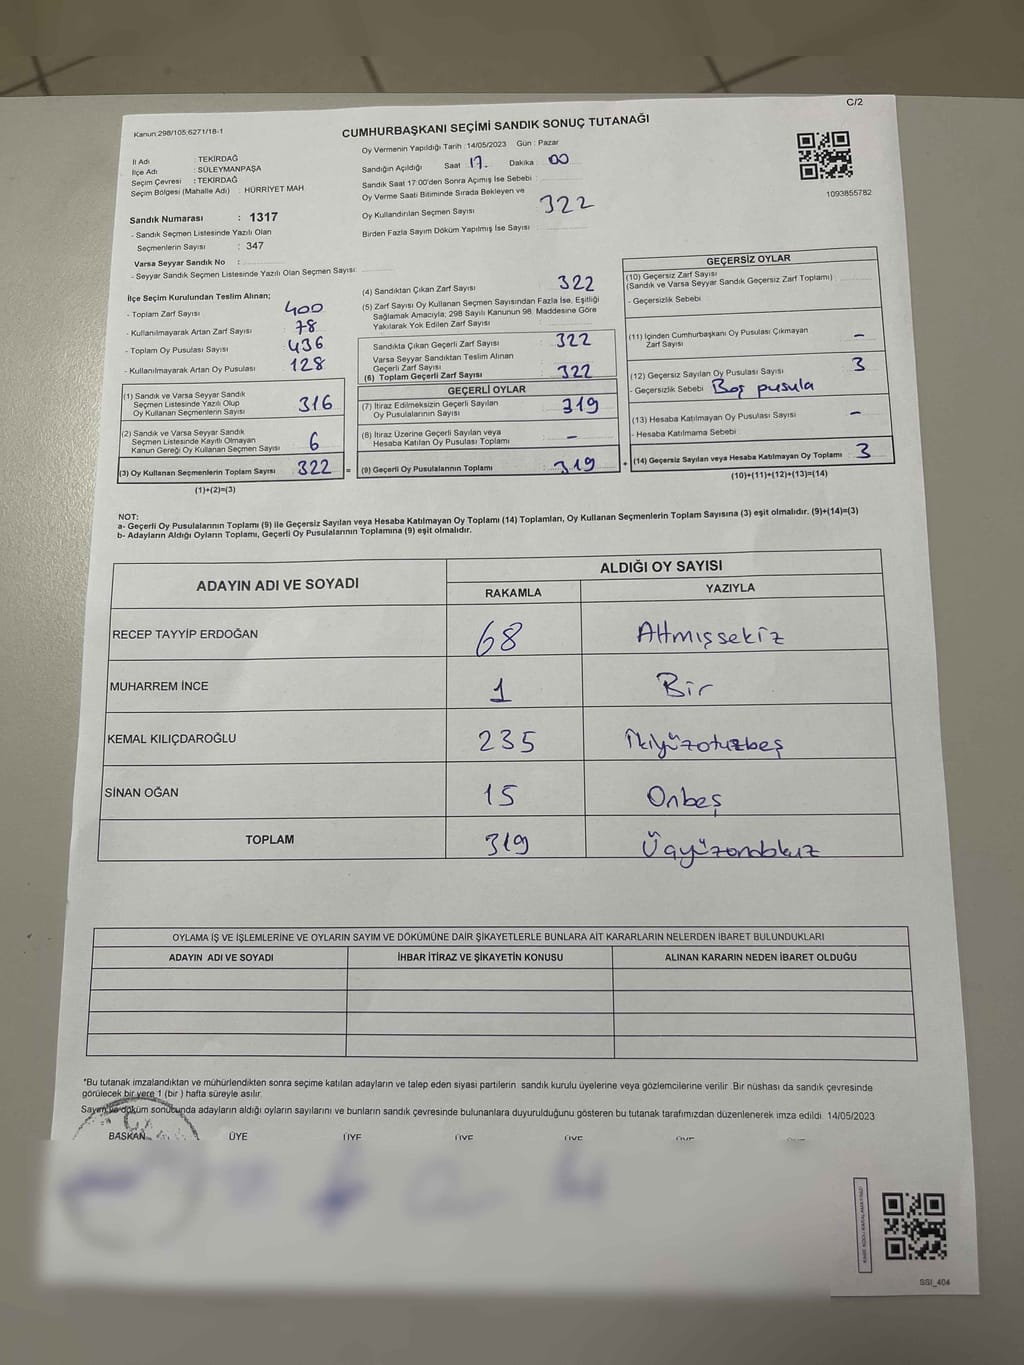 C/2
Kanun:298/105;6271/18-1
CUMHURBAŞKANI SEÇİMİ SANDIK SONUÇ TUTANAĞI
İl Adı : TEKİRDAĞ
İlçe Adı : SÜLEYMANPAŞA
Seçim Çevresi : TEKİRDAĞ
Seçim Bölgesi (Mahalle Adı) : HÜRRİYET MAH.
Oy Vermenin Yapıldığı Tarih : 14/05/2023 Gün : Pazar
Sandığın Açıldığı Saat 17 Dakika : 00
Sandık Saat 17:00'den Sonra Açımış İse Sebebi :
Oy Verme Saati Bitiminde Sırada Bekleyen ve
Oy Kullandırılan Seçmen Sayısı 322
Birden Fazla Sayım Döküm Yapılmış İse Sayısı :
1093855782
Sandık Numarası : 1317
- Sandık Seçmen Listesinde Yazılı Olan
Seçmenlerin Sayısı : 347
Varsa Seyyar Sandık No :
- Seyyar Sandık Seçmen Listesinde Yazılı Olan Seçmen Sayısı:
İlçe Seçim Kurulundan Teslim Alınan;
- Toplam Zarf Sayısı : 400
- Kullanılmayarak Artan Zarf Sayısı : 78
- Toplam Oy Pusulası Sayısı : 436
- Kullanılmayarak Artan Oy Pusulası : 128
(1) Sandık ve Varsa Seyyar Sandık
Seçmen Listesinde Yazılı Olup
Oy Kullanan Seçmenlerin Sayısı : 316
(2) Sandık ve Varsa Seyyar Sandık
Seçmen Listesinde Kayıtlı Olmayan
Kanun Gereği Oy Kullanan Seçmen Sayısı : 6
(3) Oy Kullanan Seçmenlerin Toplam Sayısı : 322 =
(1)+(2)=(3)
(4) Sandıktan Çıkan Zarf Sayısı : 322
(5) Zarf Sayısı Oy Kullanan Seçmen Sayısından Fazla İse, Eşitliği
Sağlamak Amacıyla; 298 Sayılı Kanunun 98. Maddesine Göre
Yakılarak Yok Edilen Zarf Sayısı :
Sandıkta Çıkan Geçerli Zarf Sayısı : 322
Varsa Seyyar Sandıktan Teslim Alınan
Geçerli Zarf Sayısı :
(6) Toplam Geçerli Zarf Sayısı : 322
GEÇERLİ OYLAR
(7) İtiraz Edilmeksizin Geçerli Sayılan
Oy Pusulalarının Sayısı : 319
(8) İtiraz Üzerine Geçerli Sayılan veya
Hesaba Katılan Oy Pusulası Toplamı : -
(9) Geçerli Oy Pusulalarının Toplamı : 319 +
GEÇERSİZ OYLAR
(10) Geçersiz Zarf Sayısı
(Sandık ve Varsa Seyyar Sandık Geçersiz Zarf Toplamı) :
- Geçersizlik Sebebi
(11) İçinden Cumhurbaşkanı Oy Pusulası Çıkmayan
Zarf Sayısı : -
(12) Geçersiz Sayılan Oy Pusulası Sayısı : 3
- Geçersizlik Sebebi Boş pusula
(13) Hesaba Katılmayan Oy Pusulası Sayısı : -
- Hesaba Katılmama Sebebi
(14) Geçersiz Sayılan veya Hesaba Katılmayan Oy Toplamı : 3
(10)+(11)+(12)+(13)=(14)
NOT:
a- Geçerli Oy Pusulalarının Toplamı (9) ile Geçersiz Sayılan veya Hesaba Katılmayan Oy Toplamı (14) Toplamları, Oy Kullanan Seçmenlerin Toplam Sayısına (3) eşit olmalıdır. (9)+(14)=(3)
b- Adayların Aldığı Oyların Toplamı, Geçerli Oy Pusulalarının Toplamına (9) eşit olmalıdır.
ADAYIN ADI VE SOYADI ALDIĞI OY SAYISI
RAKAMLA YAZIYLA
RECEP TAYYİP ERDOĞAN 68 Altmışsekiz
MUHARREM İNCE 1 Bir
KEMAL KILIÇDAROĞLU 235 İkiyüzotuzbeş
SİNAN OĞAN 15 Onbeş
TOPLAM 319 Üçyüzondokuz
OYLAMA İŞ VE İŞLEMLERİNE VE OYLARIN SAYIM VE DÖKÜMÜNE DAİR ŞİKAYETLERLE BUNLARA AİT KARARLARIN NELERDEN İBARET BULUNDUKLARI
ADAYIN ADI VE SOYADI İHBAR İTİRAZ VE ŞİKAYETİN KONUSU ALINAN KARARIN NEDEN İBARET OLDUĞU
*Bu tutanak imzalandıktan ve mühürlendikten sonra seçime katılan adayların ve talep eden siyasi partilerin sandık kurulu üyelerine veya gözlemcilerine verilir. Bir nüshası da sandık çevresinde
görülecek bir yere 1 (bir ) hafta süreyle asılır.
Sayım ve döküm sonucunda adayların aldığı oyların sayılarını ve bunların sandık çevresinde bulunanlara duyurulduğunu gösteren bu tutanak tarafımızdan düzenlenerek imza edildi. 14/05/2023
BAŞKAN ÜYE ÜYE ÜYE ÜYE ÜYE
SSI_404